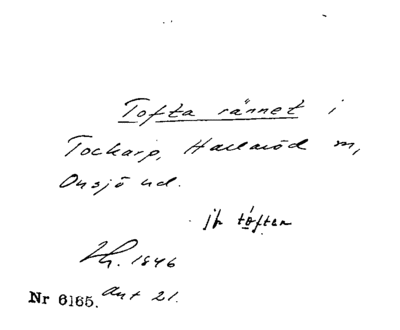 Tofta rännet i
Tockarp, Hallaröd m,
Onsjö hd.
jfr tóften
1846
Nr 6165. Ant 21.